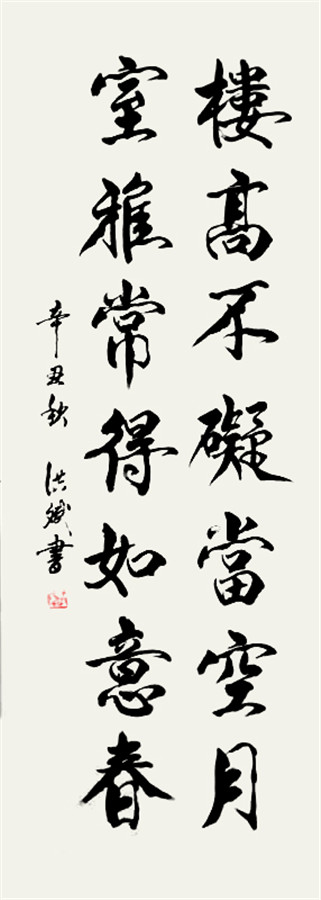 樓高不礙當空月
室雅常得如意春
辛丑秋 洪斌書